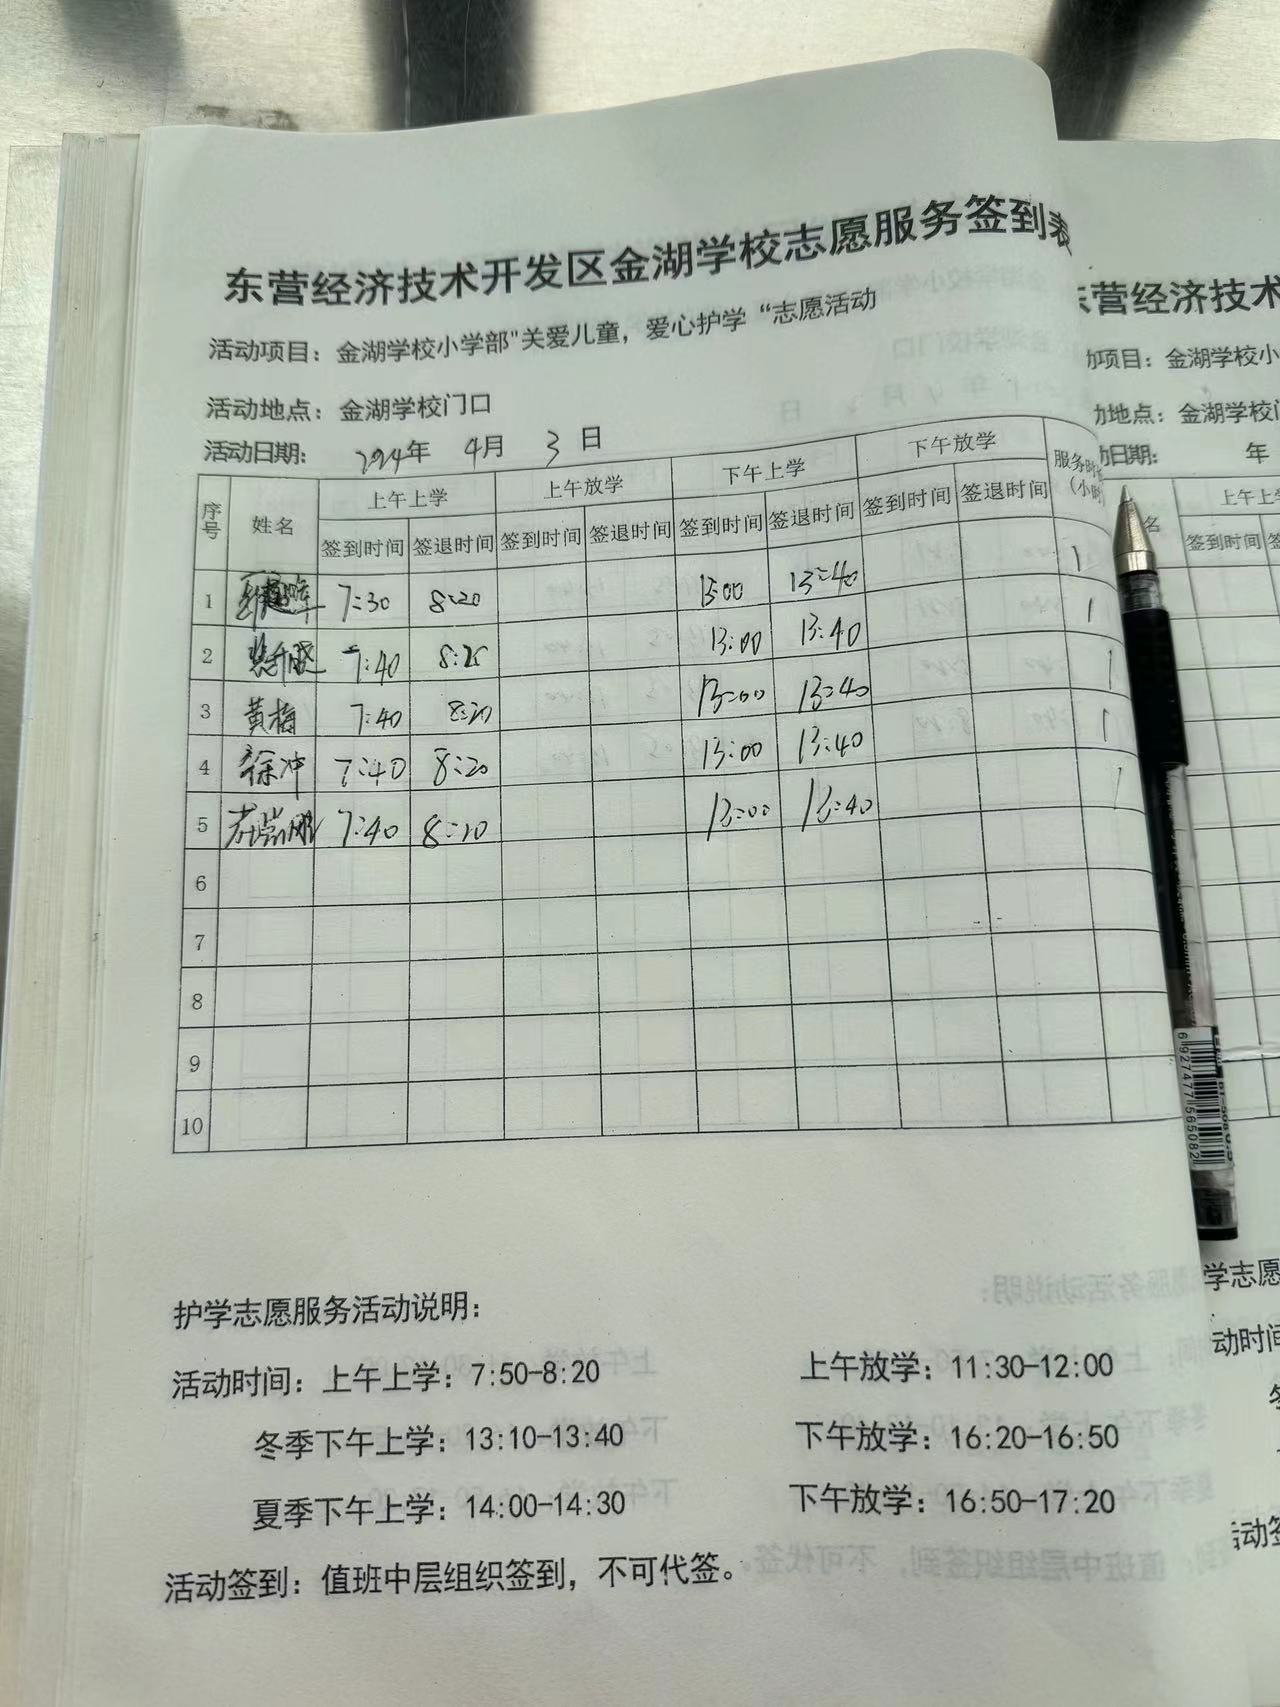 东营经济技术开发区金湖学校志愿服务签到表
活动项目：金湖学校小学部"关爱儿童，爱心护学“志愿活动
活动地点：金湖学校门口
活动日期： 2024年 4月 3 日
序号 姓名 上午上学 上午放学 下午上学 下午放学 服务时 (小时
签到时间 签退时间 签到时间 签退时间 签到时间 签退时间 签到时间 签退时间
1 7:30 8:20 13:00 13:40 1
2 7:40 8:25 13:00 13:40 1
3 黄梅 7:40 8:20 13:00 13:40 1
4 徐冲 7:40 8:20 13:00 13:40 1
5 7:40 8:20 13:00 13:40 1
6
7
8
9
10
护学志愿服务活动说明：
活动时间：上午上学：7:50-8:20 上午放学：11:30-12:00
冬季下午上学：13:10-13:40 下午放学：16:20-16:50
夏季下午上学：14:00-14:30 下午放学：16:50-17:20
活动签到：值班中层组织签到，不可代签。
营经济技术
项目：金湖学校小
地点：金湖学校门
日期： 年
名 上午上学
签到时间 签
6927477565082
学志愿
动时间